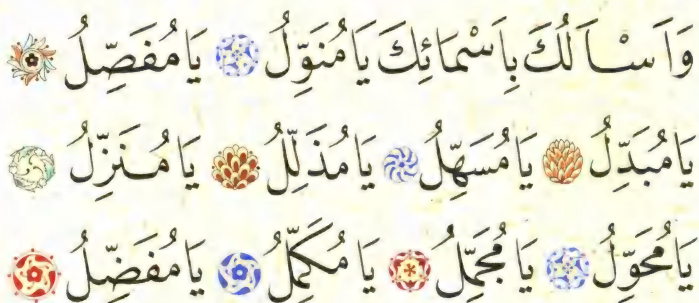 وَاَسْاَلُكَ بِاَسْمَائِكَ يَا مُنَوِّلُ يَا مُفَصِّلُ
يَا مُبَدِّلُ يَا مُسَهِّلُ يَا مُذَلِّلُ يَا مُنَزِّلُ
يَا مُحَوِّلُ يَا مُجَمِّلُ يَا مُكَمِّلُ يَا مُفَضِّلُ